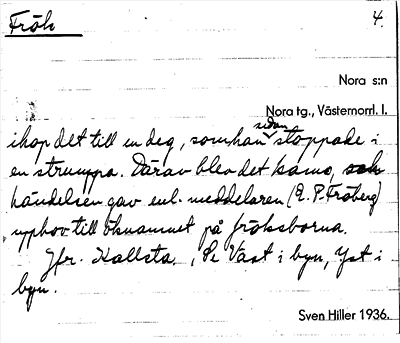 Frök 4.
Nora s:n
Nora tg., Västernorrl. l.
sedan
ihop det till en deg, som han stoppade i
en strumpa. Därav blev det kams, och
händelsen gav enl. meddelaren (E. P. Fröberg)
upphov till öknamnet på fröksborna.
Jfr. Kallsta, Pe Väst i byn, Yst i
byn.
Sven Hiller 1936.